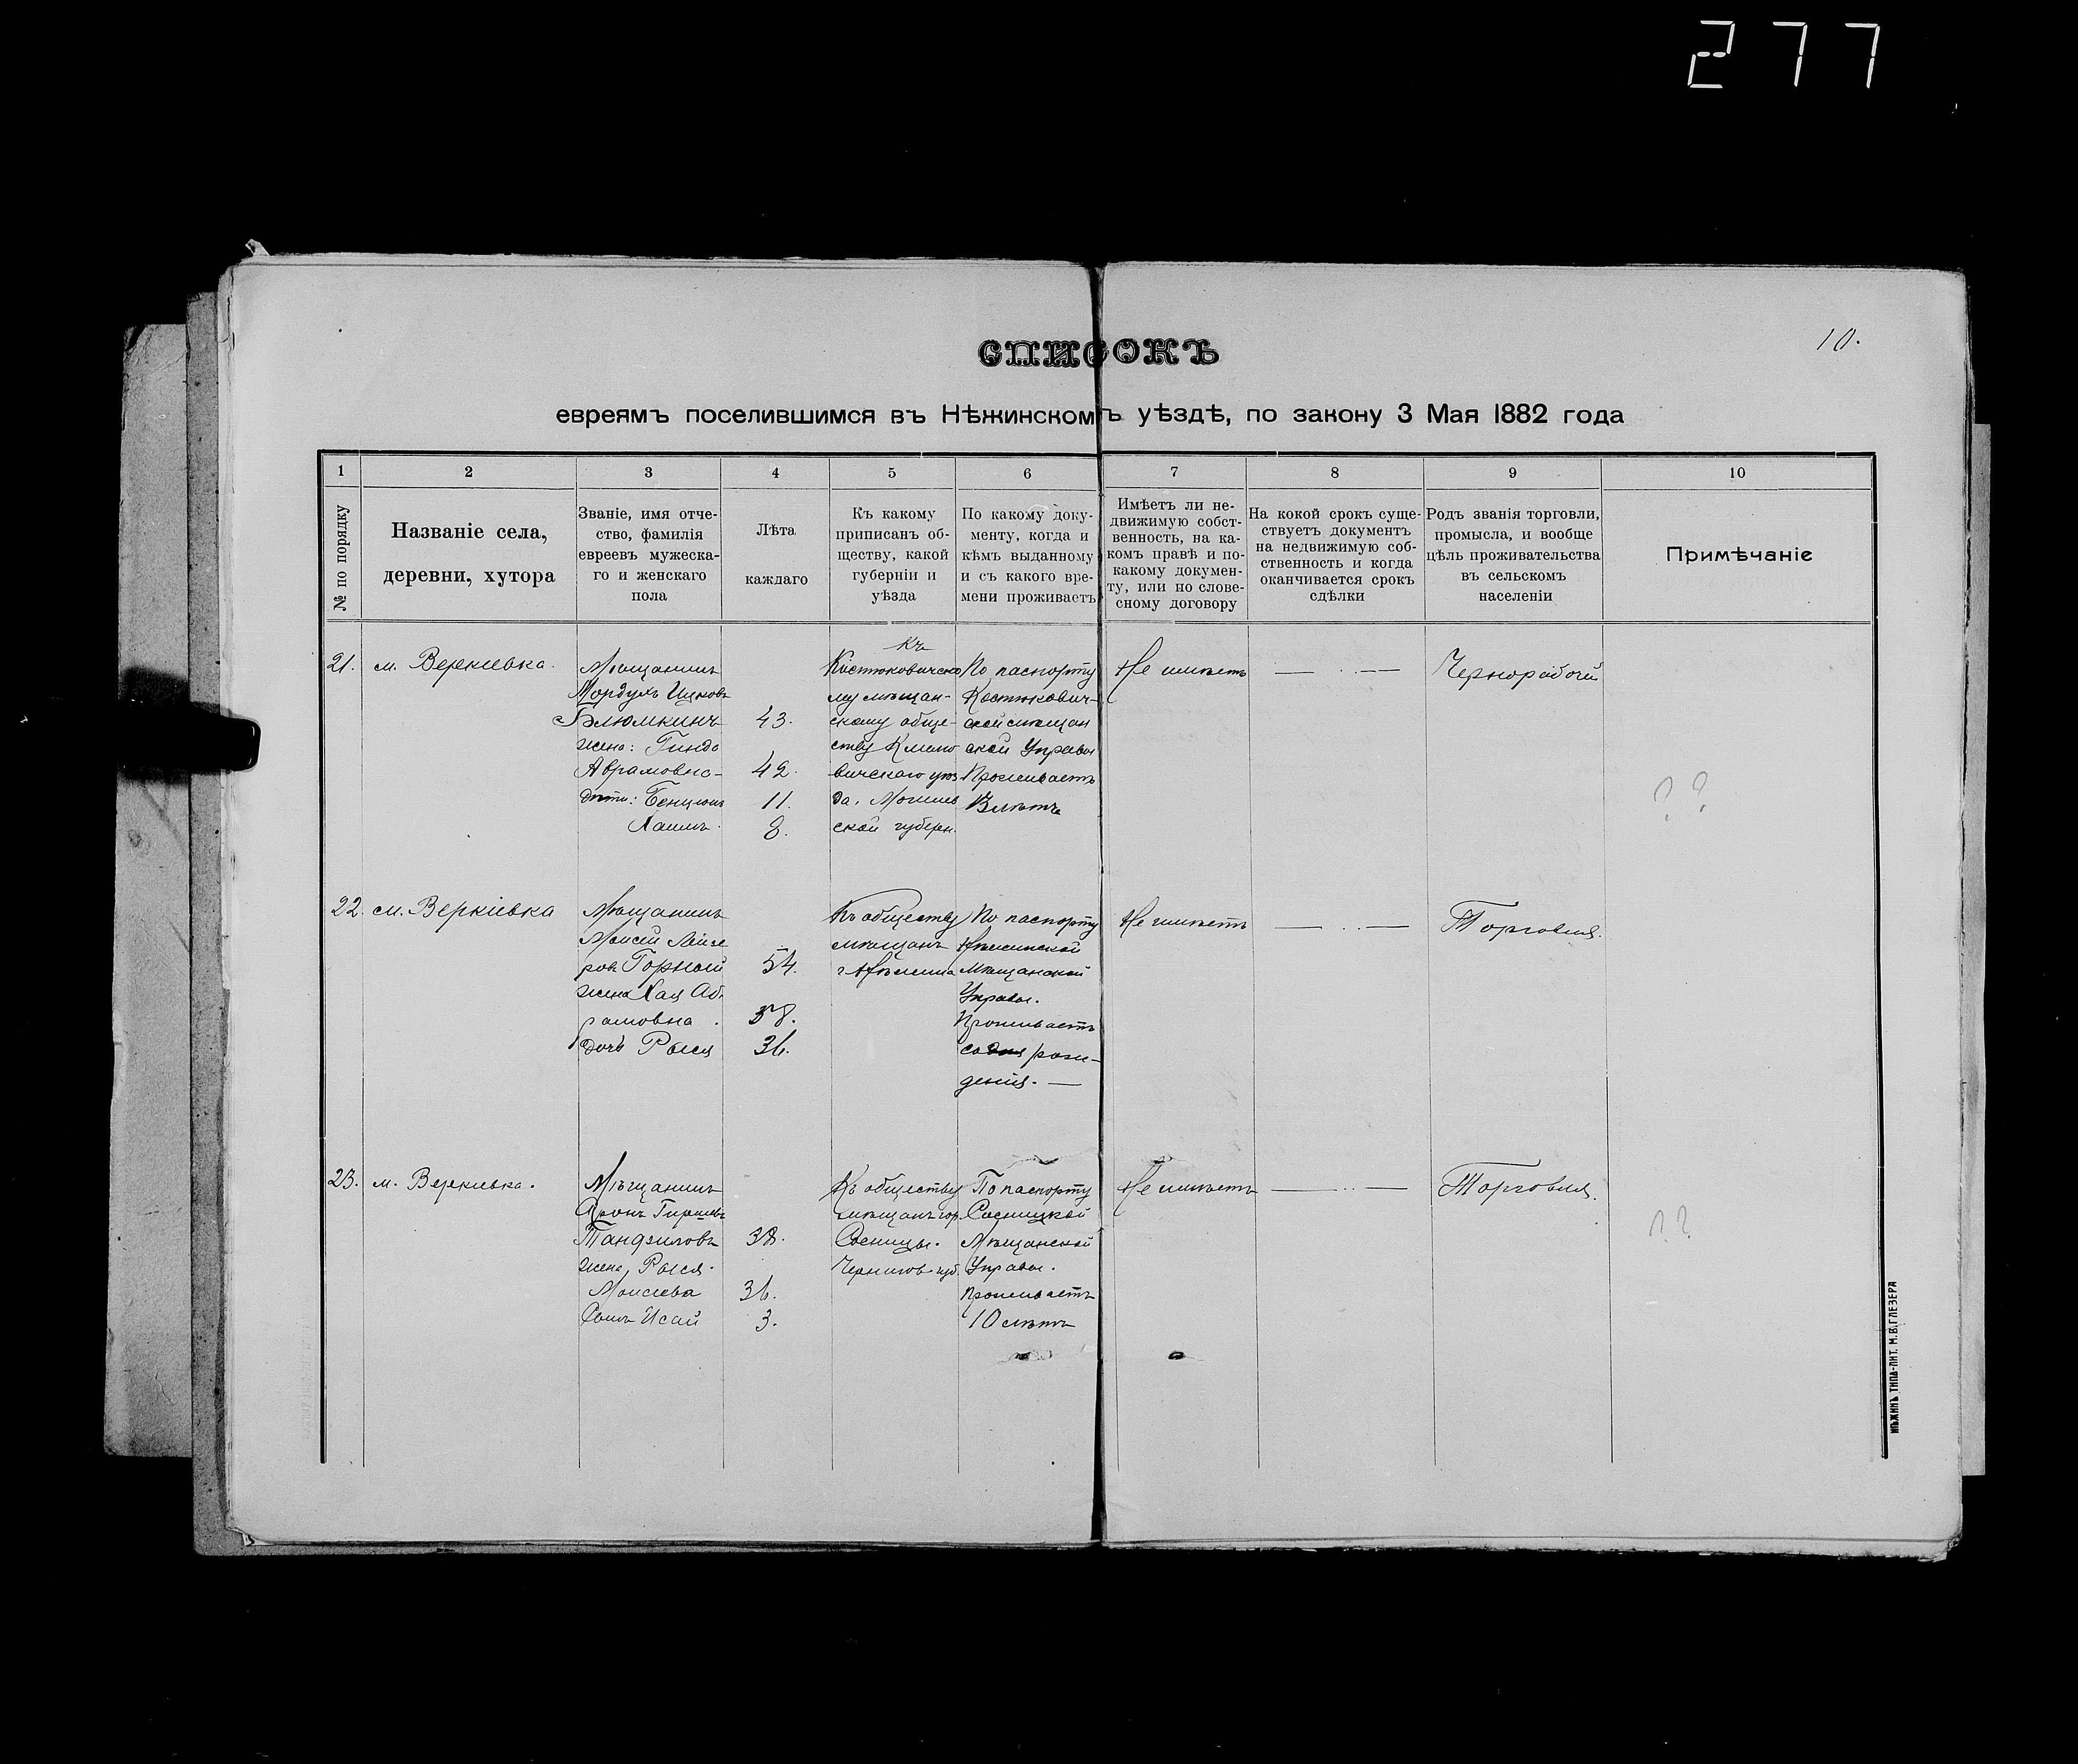 277
10.
СПИСОКЪ
евреямъ поселившимся въ Нѣжинскомъ уѣздѣ, по закону 3 Мая 1882 года
1
2
3
4
5
6
7
8
9
10
№ по порядку
Названіе села,
деревни, хутора
Званіе, имя отче-
ство, фамилія
евреевъ мужеска-
го и женскаго
пола
Лѣта
каждаго
Къ какому
приписанъ об-
ществу, какой
губерніи и
уѣзда
По какому доку-
менту, когда и
кѣмъ выданному
и съ какого вре-
мени проживаетъ
Имѣетъ ли не-
движимую собст-
венность, на ка-
комъ правѣ и по-
какому докумен-
ту, или по слове-
сному договору
На кокой срокъ суще-
ствуетъ документъ
на недвижимую соб-
ственность и когда
оканчивается срокъ
сдѣлки
Родъ званія торговли,
промысла, и вообще
цѣль проживательства
въ сельскомъ
населеніи
Примѣчаніе
21.
м. Веркіевка.
Мѣщанинъ
Мордухъ Ицковъ
Блюмкинъ
жена: Гинда
Аврамовна
дѣти: Бенціонъ
Хаимъ.
43.
42.
11.
8.
Къ
Костюковичско
му мѣщан-
скому обще-
ству Климо
вичскаго уѣз
да, Могилев
ской губерн.
По паспорту
Костюкович-
ской мѣщан
ской Управы
Проживаетъ
Не имѣетъ
— . —
Чернорабочій
? ?
22.
м. Веркіевка
Мѣщанинъ
Моисей Лейзе
ровъ Горной
жена Хая Аб.
рамовна.
дочь Рыся
54.
38.
36.
Къ обществу
мѣщанъ
г. Нѣжина
По паспорту
Нѣжинской
Мѣщанской
Управы.
Проживаетъ
со дня рож-
денія. —
Не имѣетъ
— . . —
Торговля.
23.
м. Веркіевка.
Мѣщанинъ
Аронъ Гиршевъ
Танфиловъ
жена, Рыся.
Моисеева
Сынъ Исай
38.
36.
3.
Къ обществу
мѣщанъ гор.
Сосницы.
Чернигов. губ.
По паспорту
Сосницкой
Мѣщанской
Управы.
проживаетъ
10 лѣтъ
Не имѣетъ
— . . —
Торговля.
? ?
НѢЖИНЪ ТИПО-ЛИТ. М. В. ГЛЕЗЕРА